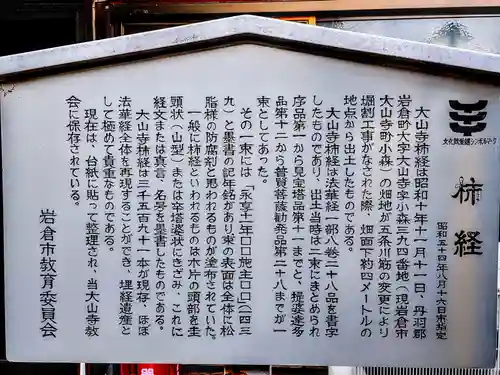 文化財愛護シンボルマーク
柿経
昭和五十四年八月十六日市指定
大山寺柿経は昭和十年十一月十一日、丹羽郡
岩倉町大字大山寺字小森三九四番地（現岩倉市
大山寺町小森）の畑地が五条川筋の変更により
堀割工事がなされた際、畑面下約四メートルの
地点から出土したものである。
大山寺柿経は法華経一部八巻二十八品を書字
したものであり、出土当時は二束にまとめられ
序品第一から見宝塔品第十一までと、提婆達多
品第十二から普賢菩薩勧発品第二十八までが一
束としてあった。
その一束には「永享十二年□□施主□□」（一四三
九）と墨書の記年銘があり束の表面は全体に松
脂様の防腐剤と思われるものが塗布されていた。
一般に柿経といわれるものは木片の頭部を圭
頭状（山型）または卒塔婆状にきざみ、これに
経文または真言、名号を墨書したものである。
大山寺柿経は三千五百九十一本が現存、ほぼ
法華経全体を再現することができ、埋経遺産と
して極めて貴重なものである。
現在は、台紙に貼って整理され、当大山寺教
会に保存されている。
岩倉市教育委員会